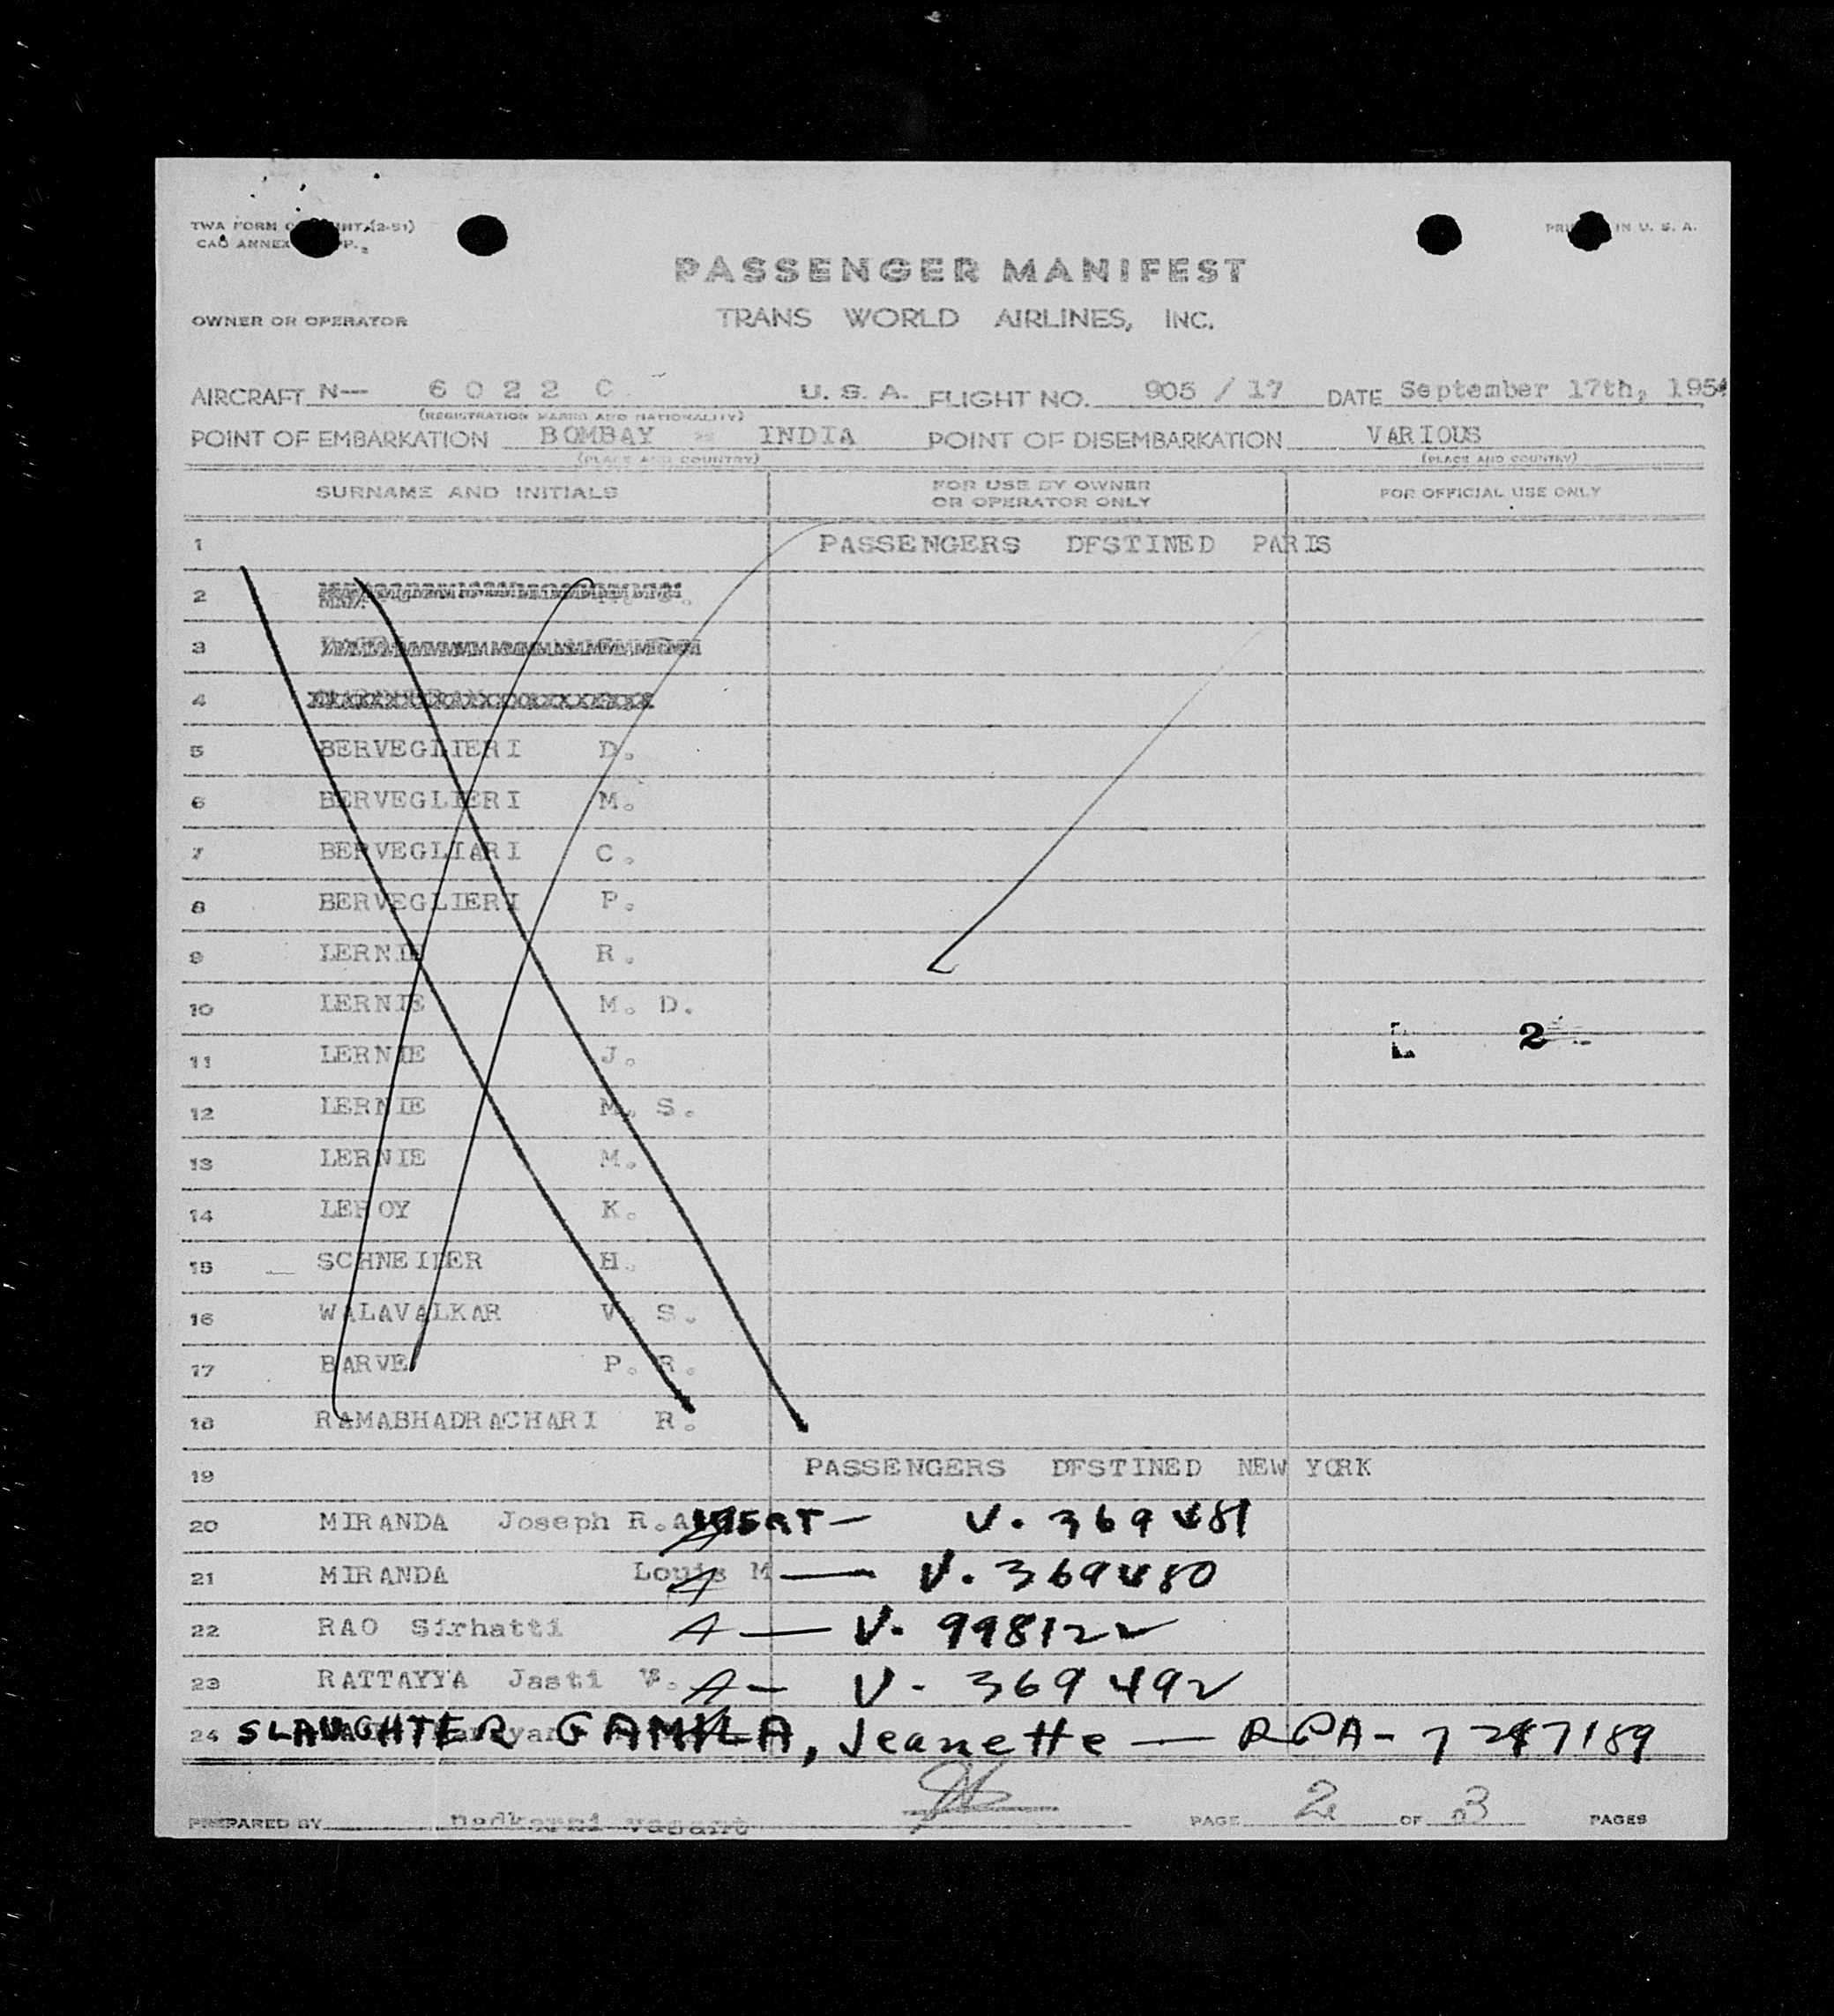 TWA FORM
PRINTED IN U. S. A.
CAO ANNEX
PASSENGER MANIFEST
OWNER OR OPERATOR TRANS WORLD AIRLINES, INC.
AIRCRAFT N— 6 0 2 2 C U. S. A. FLIGHT NO. 905 / 17 DATE September 17th, 195
(REGISTRATION MARKS AND NATIONALITY)
POINT OF EMBARKATION BOMBAY - INDIA POINT OF DISEMBARKATION VARIOUS
(PLACE AND COUNTRY) (PLACE AND COUNTRY)
SURNAME AND INITIALS FOR USE BY OWNER OR OPERATOR ONLY FOR OFFICIAL USE ONLY
1 PASSENGERS DFSTINED PARIS
2
3
4
5 BERVEGLIERI D.
6 BERVEGLIERI M.
7 BERVEGLIARI C.
8 BERVEGLIERI P.
9 LERNIE R.
10 LERNIE M. D.
11 LERNIE J.
2
12 LERNIE M. S.
13 LERNIE M.
14 LEROY K.
15 SCHNEIDER H.
16 WALAVALKAR V. S.
17 BARVE P. R.
18 RAMABHADRACHARI R.
19 PASSENGERS DFSTINED NEW YORK
20 MIRANDA Joseph R. V. 369481
21 MIRANDA Louis M — V. 369480
22 RAO Sirhatti A — V. 998122
23 RATTAYYA Jasti V. A — V - 369492
24 SLAUGHTER GAMILA, Jeanette — RPA - 7247189
PREPARED BY PAGE 2 OF 3 PAGES